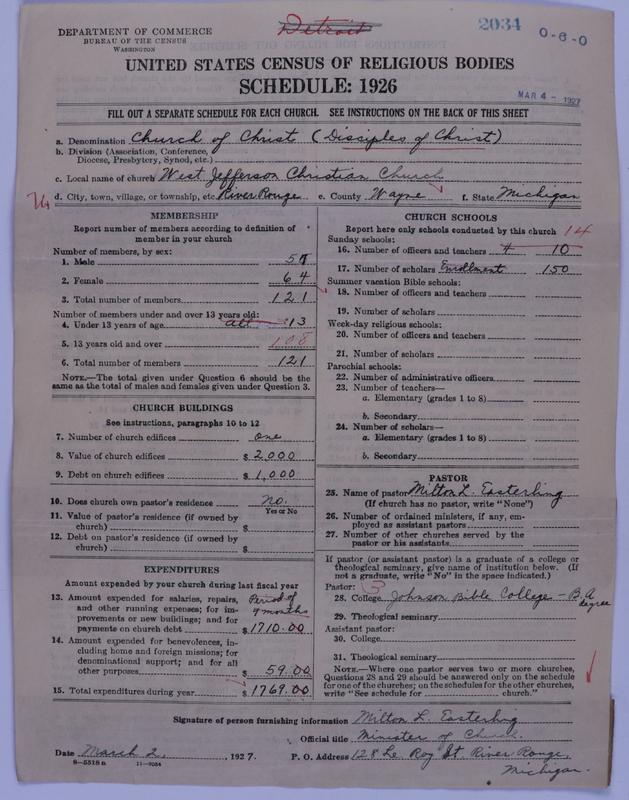 DEPARTMENT OF COMMERCE
BUREAU OF THE CENSUS
WASHINGTON
Detroit
2034
0-6-0
UNITED STATES CENSUS OF RELIGIOUS BODIES
SCHEDULE: 1926
MAR 4 - 1927
FILL OUT A SEPARATE SCHEDULE FOR EACH CHURCH. SEE INSTRUCTIONS ON THE BACK OF THIS SHEET
a. Denomination Church of Christ (Disciples of Christ)
b. Division (Association, Conference, Diocese, Presbytery, Synod, etc.)
c. Local name of church West Jefferson Christian Church
d. City, town, village, or township, etc. River Rouge e. County Wayne f. State Michigan
MEMBERSHIP
Report number of members according to definition of member in your church
Number of members, by sex:
1. Male 57
2. Female 64
3. Total number of members 121
Number of members under and over 13 years old:
4. Under 13 years of age all 13
5. 13 years old and over 108
6. Total number of members 121
NOTE.—The total given under Question 6 should be the same as the total of males and females given under Question 3.
CHURCH BUILDINGS
See instructions, paragraphs 10 to 12
7. Number of church edifices one
8. Value of church edifices $ 2,000
9. Debt on church edifices $ 1,000
10. Does church own pastor's residence No.
Yes or No
11. Value of pastor's residence (if owned by church) $
12. Debt on pastor's residence (if owned by church) $
EXPENDITURES
Amount expended by your church during last fiscal year
13. Amount expended for salaries, repairs, and other running expenses; for improvements or new buildings; and for payments on church debt Period of 9 months $ 1710.00
14. Amount expended for benevolences, including home and foreign missions; for denominational support; and for all other purposes $ 59.00
15. Total expenditures during year $ 1769.00
CHURCH SCHOOLS
Report here only schools conducted by this church 14
Sunday schools:
16. Number of officers and teachers 4 10
17. Number of scholars Enrollment 150
Summer vacation Bible schools:
18. Number of officers and teachers
19. Number of scholars
Week-day religious schools:
20. Number of officers and teachers
21. Number of scholars
Parochial schools:
22. Number of administrative officers
23. Number of teachers—
a. Elementary (grades 1 to 8)
b. Secondary
24. Number of scholars—
a. Elementary (grades 1 to 8)
b. Secondary
PASTOR
25. Name of pastor Milton L. Easterling
(If church has no pastor, write "None")
26. Number of ordained ministers, if any, employed as assistant pastors
27. Number of other churches served by the pastor or his assistants
If pastor (or assistant pastor) is a graduate of a college or theological seminary, give name of institution below. (If not a graduate, write "No" in the space indicated.)
Pastor: 3
28. College Johnson Bible College - B.A degree
29. Theological seminary
Assistant pastor:
30. College
31. Theological seminary
NOTE.—Where one pastor serves two or more churches, Questions 28 and 29 should be answered only on the schedule for one of the churches; on the schedules for the other churches, write "See schedule for church."
Signature of person furnishing information Milton L. Easterling
Official title Minister of Church.
Date March 2, 1927. P. O. Address 128 Le Roy St. River Rouge, Michigan.
8—5518 a 11—9034